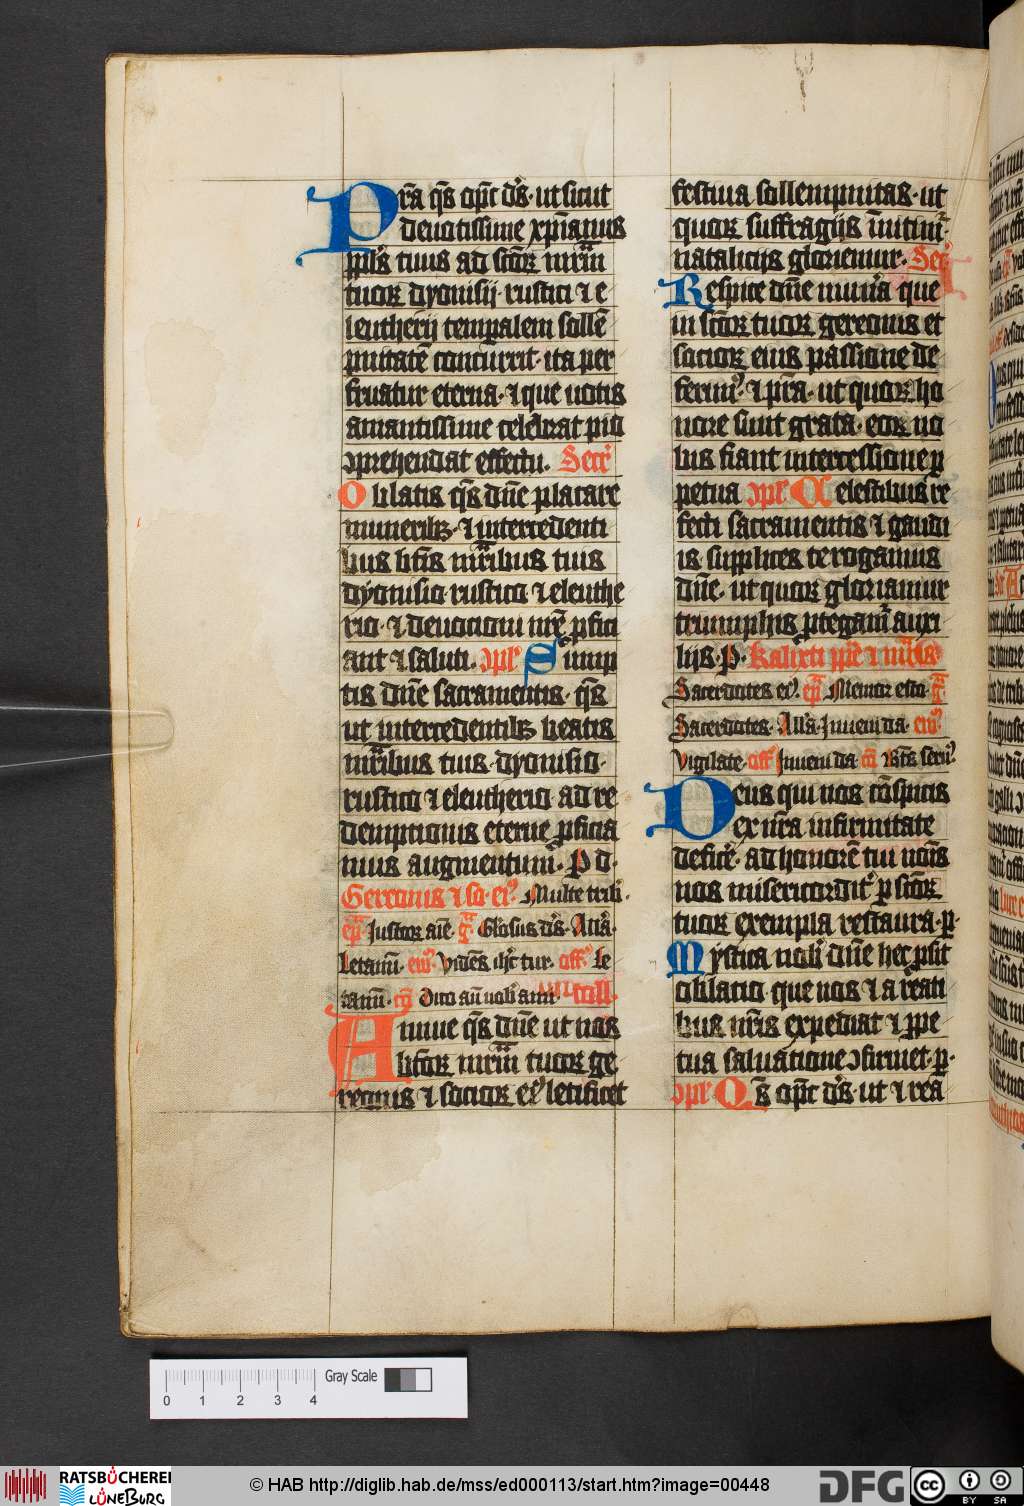 Pra qs opt ds · ut sicut
deuotissime xpianus
ppls tuus ad scor mrm
tuor dyonisij · rustici ⁊ e
leutherij temporalem solle
pnitate concurrit · ita per
fruatur eterna · ⁊ que uotis
amantissime celebrat pio
ꝯprehendat effectu. Secr
Oblatis qs dne placare
muneribz · ⁊ intercedenti
bus btis mribus tuis
dyonisio · rustico ⁊ eleuthe
rio · ⁊ deuocioni nre pfici
ant ⁊ saluti. ꝯpl Sump
tis dne sacramentis · qs
ut intercedentibz beatis
mribus tuis · dyonisio ·
rustico ⁊ eleutherio · ad re
demptionis eterne pficia
mus augmentum. P d·
Gereonis ⁊ so· ei9 Multe trib·
ep Iustor aie g Glosus ds· Alla·
Letami· ew Videns ihc tur· off le
tami· co Dico au uobis ami· Coll.
Annue qs dne ut nos
btor mrm tuor ge
reonis ⁊ socior ei9 letificet
festiua sollempnitas · ut
quor suffragijs initim
natalicijs gloriemur. Secr
Respice dne munera que
in scor tuor gereonis et
socior eius passione de
ferim9 · ⁊ pra · ut quor ho
nore sunt grata · eor no
bis fiant intercessione p
petua ꝯpl Celestibus re
fecti sacramentis ⁊ gaudi
is · supplices te rogamus
dne · ut quor gloriamur
triumphis ptegam auxi
lijs · P· Kalixti ppe ⁊ mris
Sacerdotes ei9· ep Memor esto· g
Sacerdotes · Alla· Inueni da· ew
Vigilate· off Inueni da co Bts seru9
Deus qui nos conspicis
ex nra infirmitate
deficere · ad honore tui nois
nos misericordit p scor
tuor exempla restaura · p·
Mystica nobis dne hec psit
oblatio · que nos ⁊ a reati
bus nris expediat ⁊ ppe
tua saluatione ꝯfirmet · p·
ꝯpl Qs opt ds · ut ⁊ rea
0 1 2 3 4 Gray Scale
RATSBÜCHEREI
LÜNEBURG
© HAB http://diglib.hab.de/mss/ed000113/start.htm?image=00448
DFG
cc BY SA